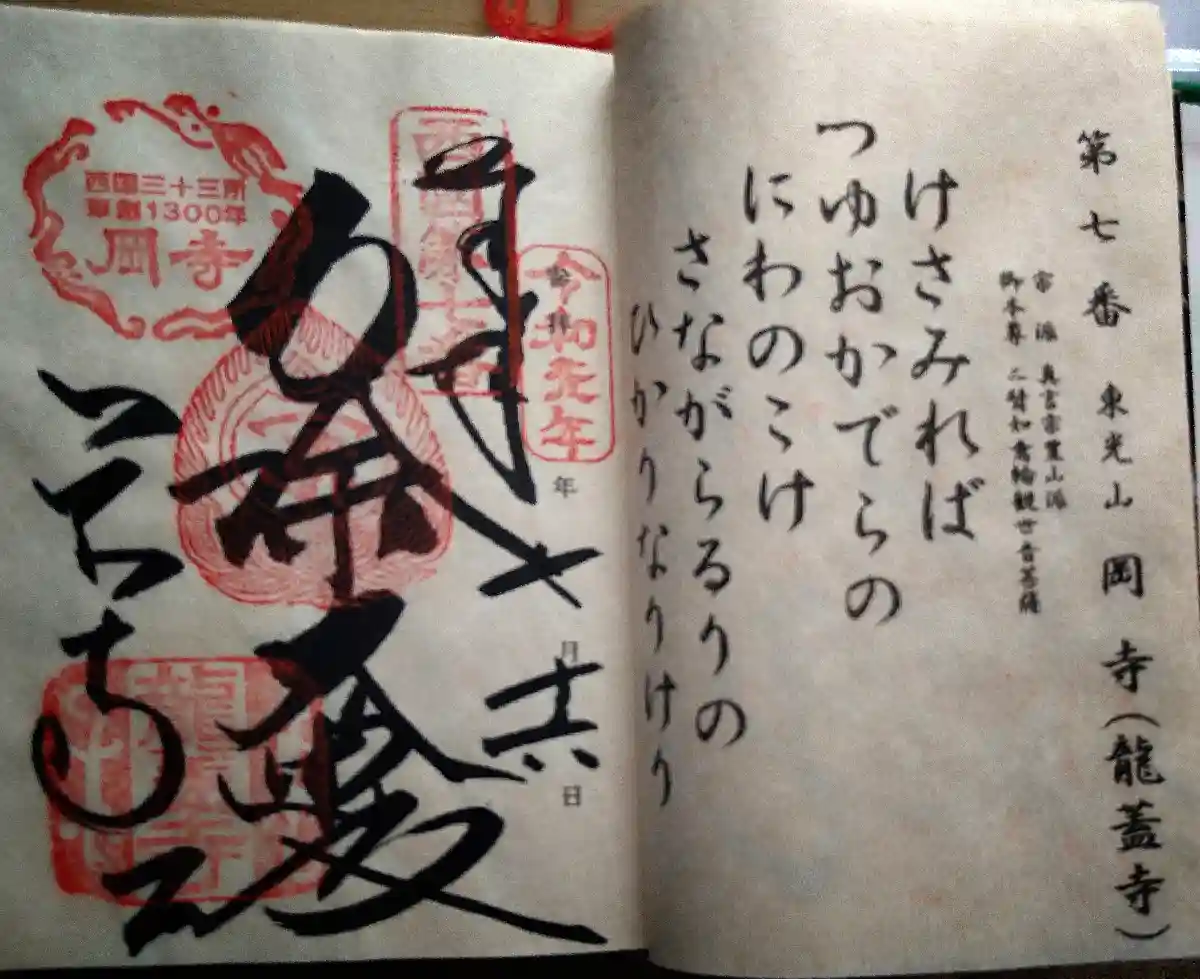 第七番 東光山 岡寺(龍蓋寺)
宗派 真言宗豊山派
御本尊 二臂如意輪観世音菩薩
けさみれば
つゆおかでらの
にわのこけ
さながらるりの
ひかりなりけり
令和元年
奉拝
年
七
月
十六
日
西国第七番
西国三十三所
草創1300年
岡寺